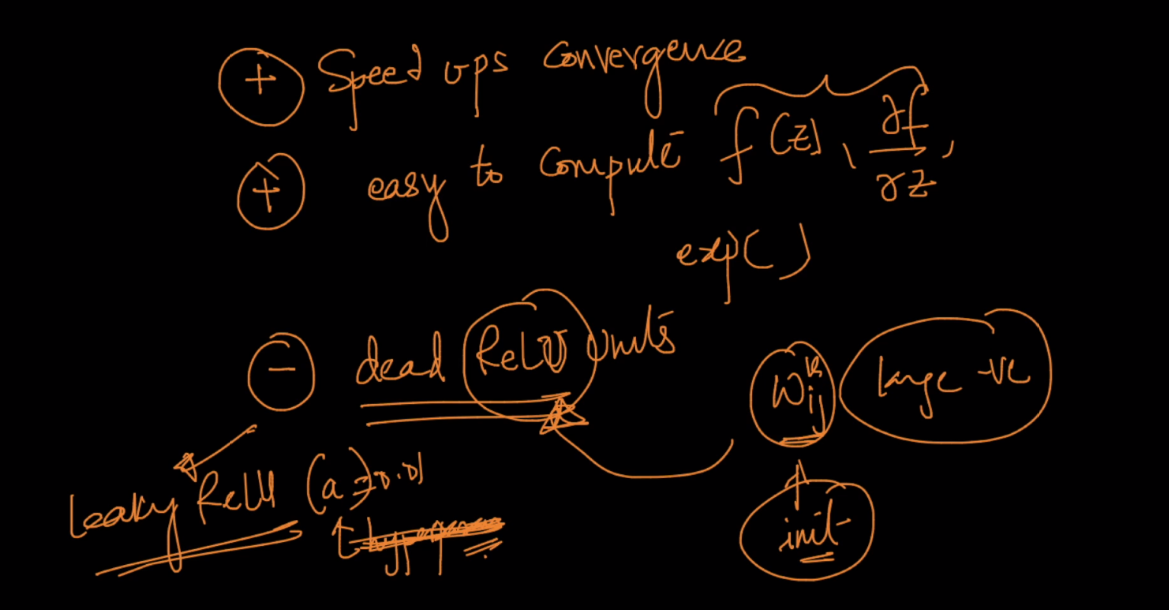 + Speed ups Convergence
+ easy to Compute f(z), ∂f/∂z,
exp( )
- dead ReLU Units
Wᵏij large -ve
Leaky ReLU (a=0.01)
init